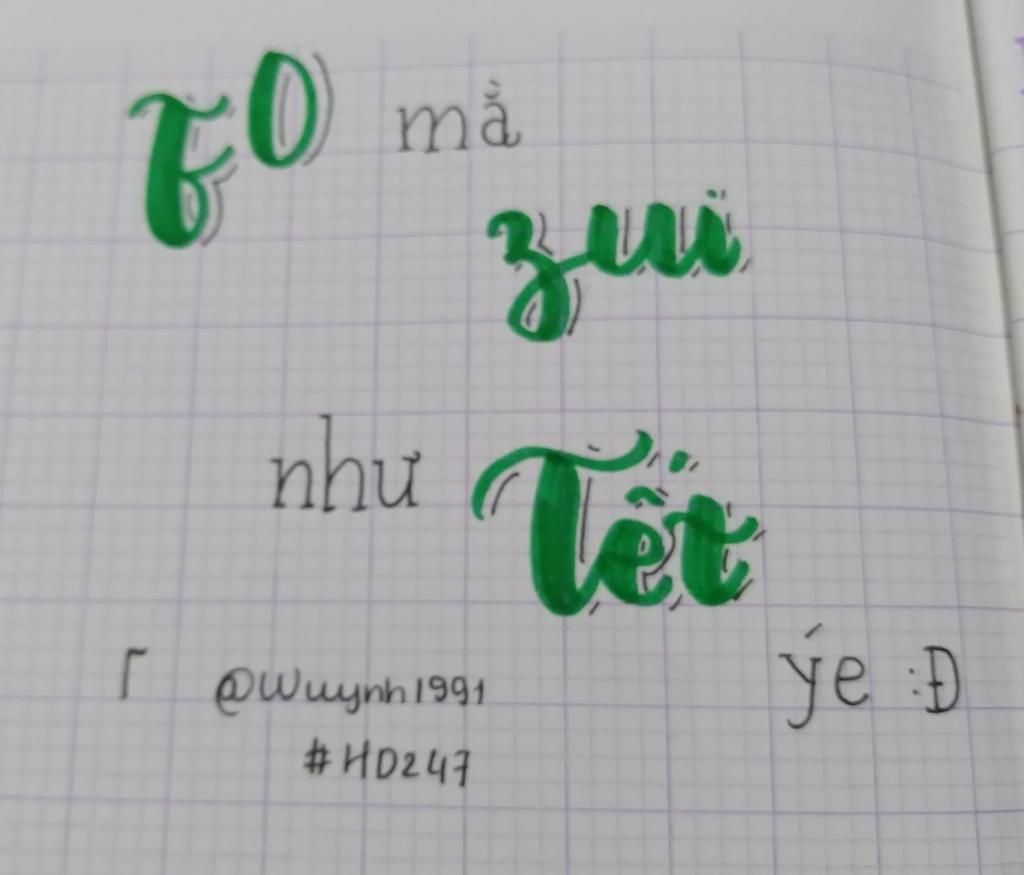 F0 mà
zui
như Tết
ýe :Đ
@Wuynh1991
#HD247